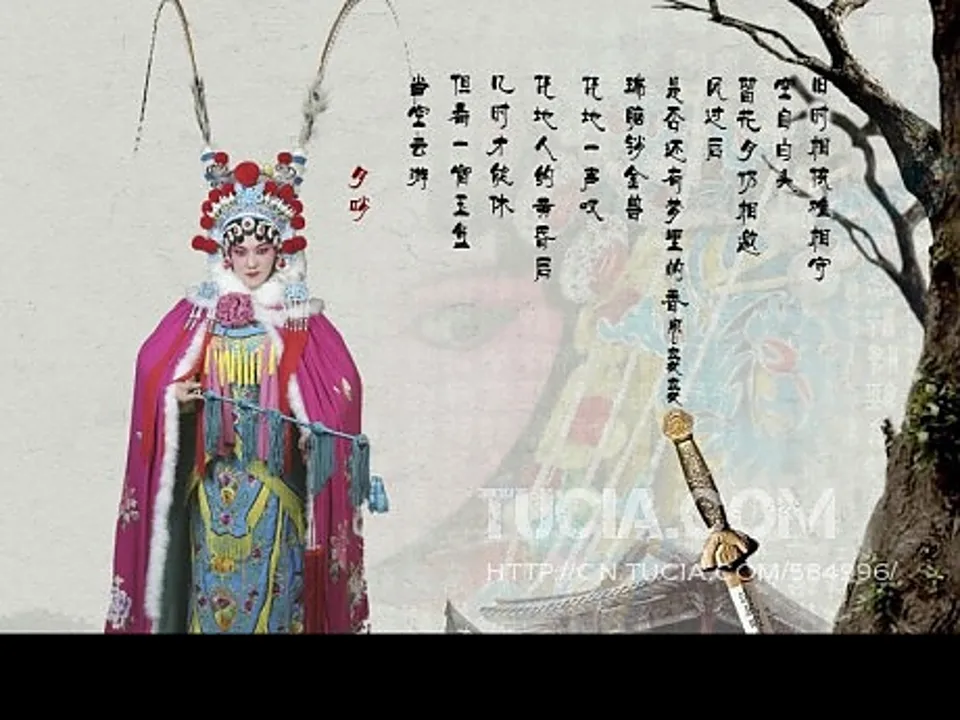 旧时相难相守
空自白头
留花夕仍相邀
风过后
是否还有梦里的香
瑞金兽
花地一声叹
花地人约黄昏后
几时才能休
但看一玉
当空云游
夕吵
TUCIA.COM
HTTP://CN.TUCIA.COM/584996/